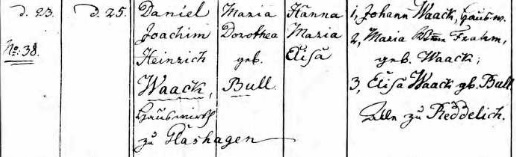 d. 23. d. 25. Daniel Maria Hanna 1, Johann Waack, Hausw.
Joachim Dorothea Maria 2, Maria Frahm,
No. 38. Heinrich geb. Elisa geb. Waack;
Waack, Bull. 3, Elisa Waack gb. Bull.
Hauswirth Alle zu Reddelich.
zu Glashagen